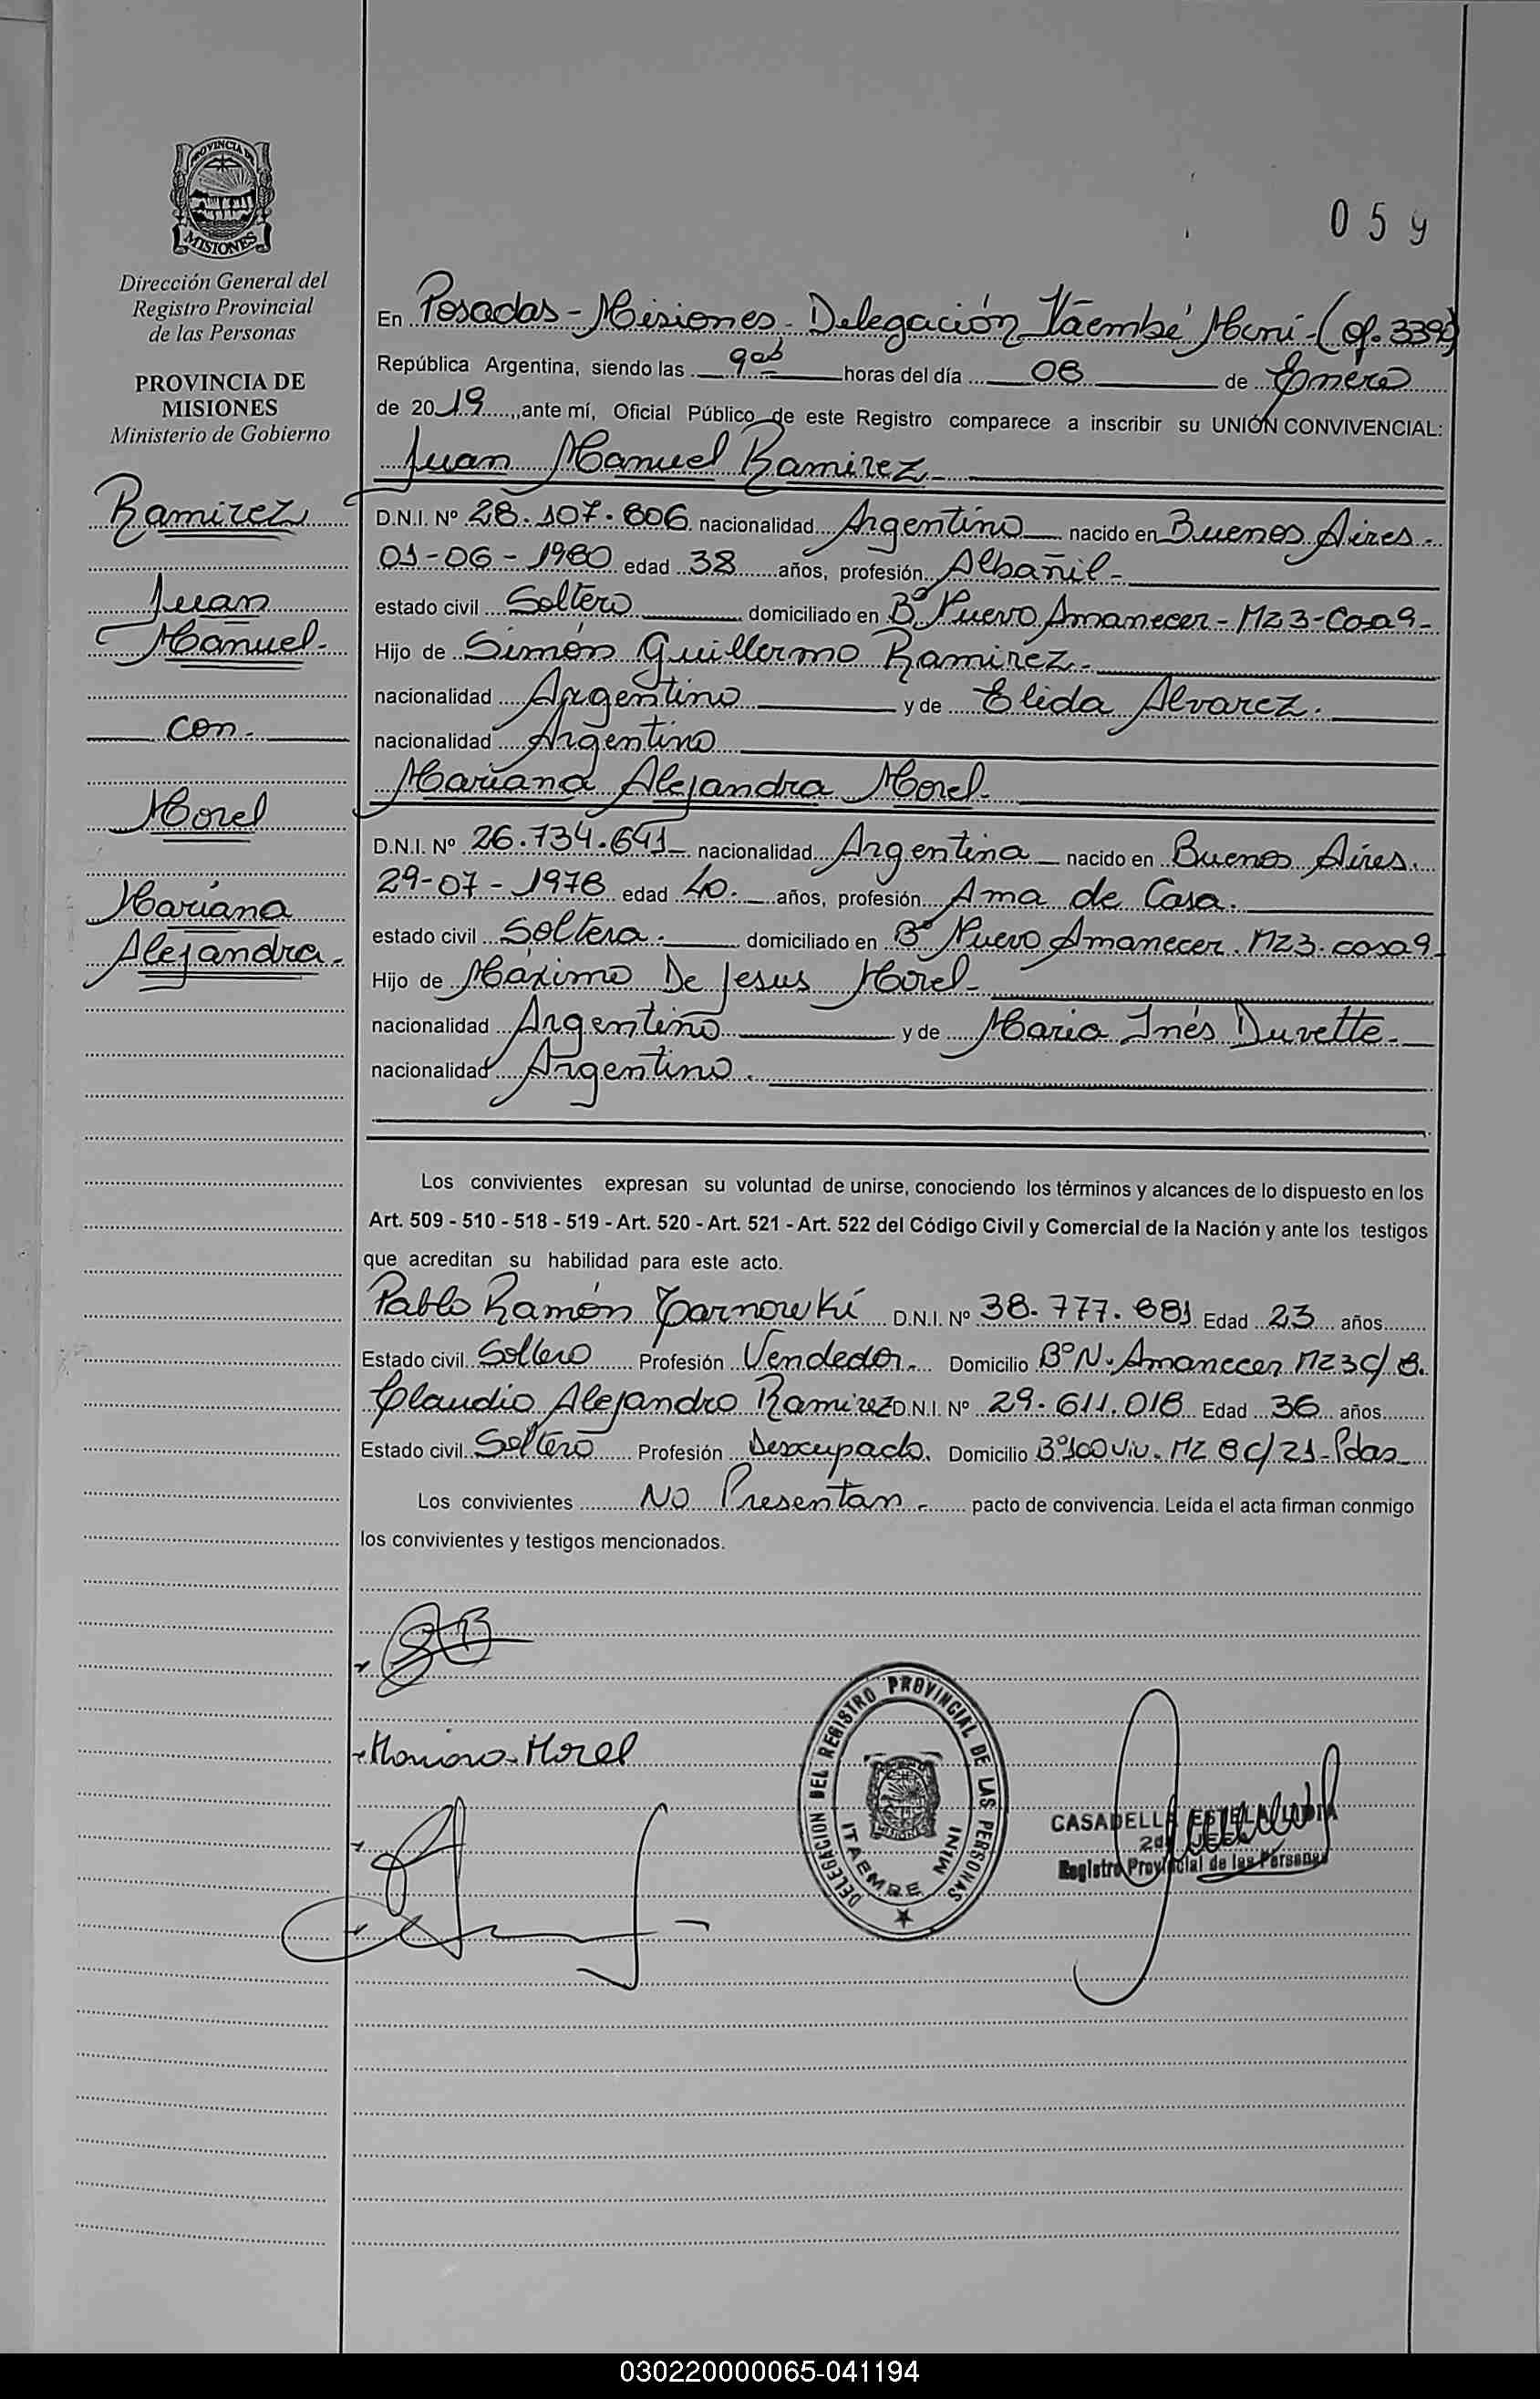 PROVINCIA DE
MISIONES
Dirección General del
Registro Provincial
de las Personas
PROVINCIA DE
MISIONES
Ministerio de Gobierno
Ramirez
Juan
Manuel-
con-
Morel
Mariana
Alejandra-
059
En Posadas - Misiones - Delegación Itaembé Mini - (of. 3392)
República Argentina, siendo las 9 horas del día 08 de Enero
de 2019, ante mí, Oficial Público de este Registro comparece a inscribir su UNIÓN CONVIVENCIAL:
Juan Manuel Ramirez-
D.N.I. Nº 28.107.806 nacionalidad Argentino nacido en Buenos Aires-
01-06-1980 edad 38 años, profesión Albañil-
estado civil Soltero domiciliado en Bº Nuevo Amanecer - Mz 3 - Casa 9-
Hijo de Simón Guillermo Ramirez-
nacionalidad Argentino y de Elida Alvarez.
nacionalidad Argentino
Mariana Alejandra Morel-
D.N.I. Nº 26.734.641- nacionalidad Argentina nacido en Buenos Aires.
29-07-1978 edad 40. años, profesión Ama de Casa.
estado civil Soltera. domiciliado en Bº Nuevo Amanecer. Mz 3. casa 9
Hijo de Máximo De Jesus Morel-
nacionalidad Argentino y de Maria Inés Duvette-
nacionalidad Argentino.
Los convivientes expresan su voluntad de unirse, conociendo los términos y alcances de lo dispuesto en los
Art. 509 - 510 - 518 - 519 - Art. 520 - Art. 521 - Art. 522 del Código Civil y Comercial de la Nación y ante los testigos
que acreditan su habilidad para este acto.
Pablo Ramón Tarnowki D.N.I. Nº 38.777.881 Edad 23 años
Estado civil Soltero Profesión Vendedor- Domicilio Bº N. Amanecer Mz 3 C/ 8.
Claudio Alejandro Ramirez D.N.I. Nº 29.611.018 Edad 36 años
Estado civil Soltero Profesión Desocupado. Domicilio Bº 100 Viv. Mz 8 C/ 21 - Pdas
Los convivientes No Presentan- pacto de convivencia. Leída el acta firman conmigo
los convivientes y testigos mencionados.
Mariana Morel
DELEGACION DEL REGISTRO PROVINCIAL DE LAS PERSONAS
ITAEMBE MINI
CASADELLA
Registro Provincial de las Personas
030220000065-041194